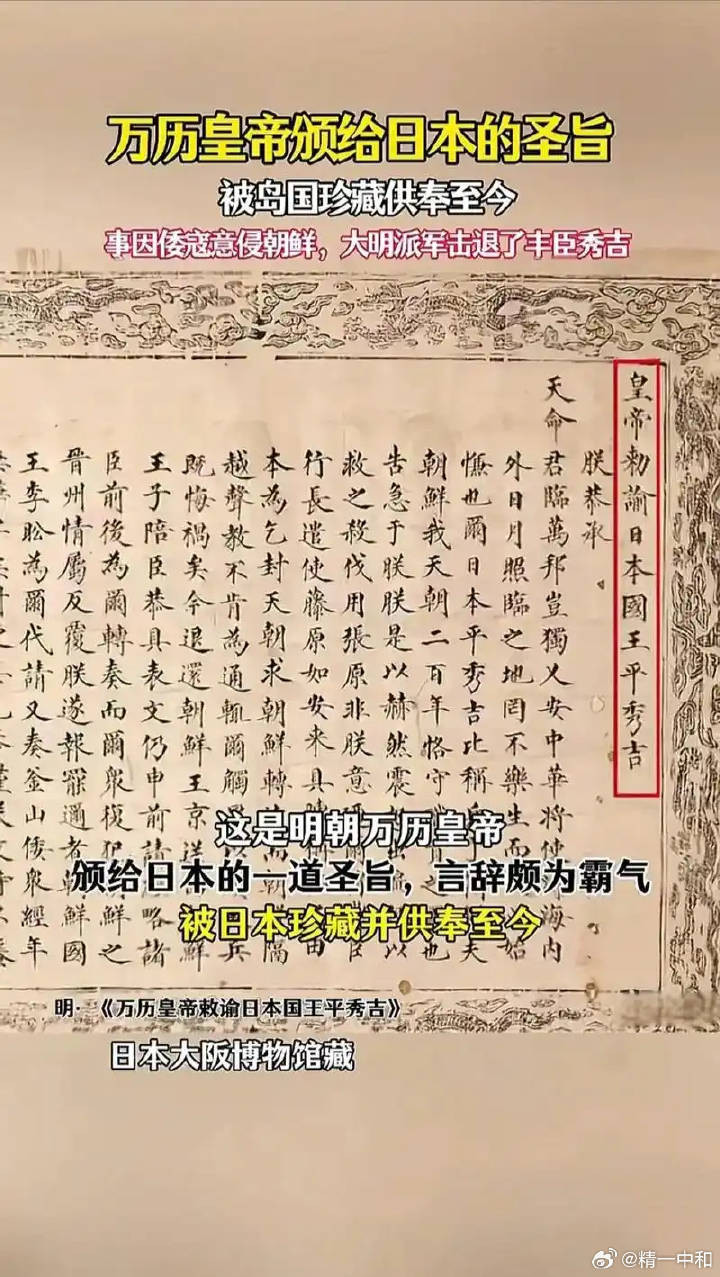 万历皇帝颁给日本的圣旨
被岛国珍藏供奉至今
事因倭寇意侵朝鲜，大明派军击退了丰臣秀吉
皇帝勅諭日本國王平秀吉
朕恭承
天命君臨萬邦豈獨乂安中華將使海內
外日月照臨之地罔不樂生而始
慊也爾日本平秀吉比稱夫
朝鮮我天朝二百年恪守也
告急于朕朕是以赫然震以
救之殺伐用張原非朕意
行長遣使藤原如安來具由
本為乞封天朝求朝鮮轉隔
越聲教不肯為通輒爾觸兵
既悔禍矣今退還朝鮮王京送鮮
王子陪臣恭具表文仍申前請略諸
臣前後為爾轉奏而爾眾復犯鮮之
晉州情屬反覆朕遂報罷邇者朝鮮國
王李昖為爾代請又奏釜山倭眾經年
这是明朝万历皇帝
颁给日本的一道圣旨，言辞颇为霸气
被日本珍藏并供奉至今
明·《万历皇帝敕谕日本国王平秀吉》
日本大阪博物馆藏
@精一中和